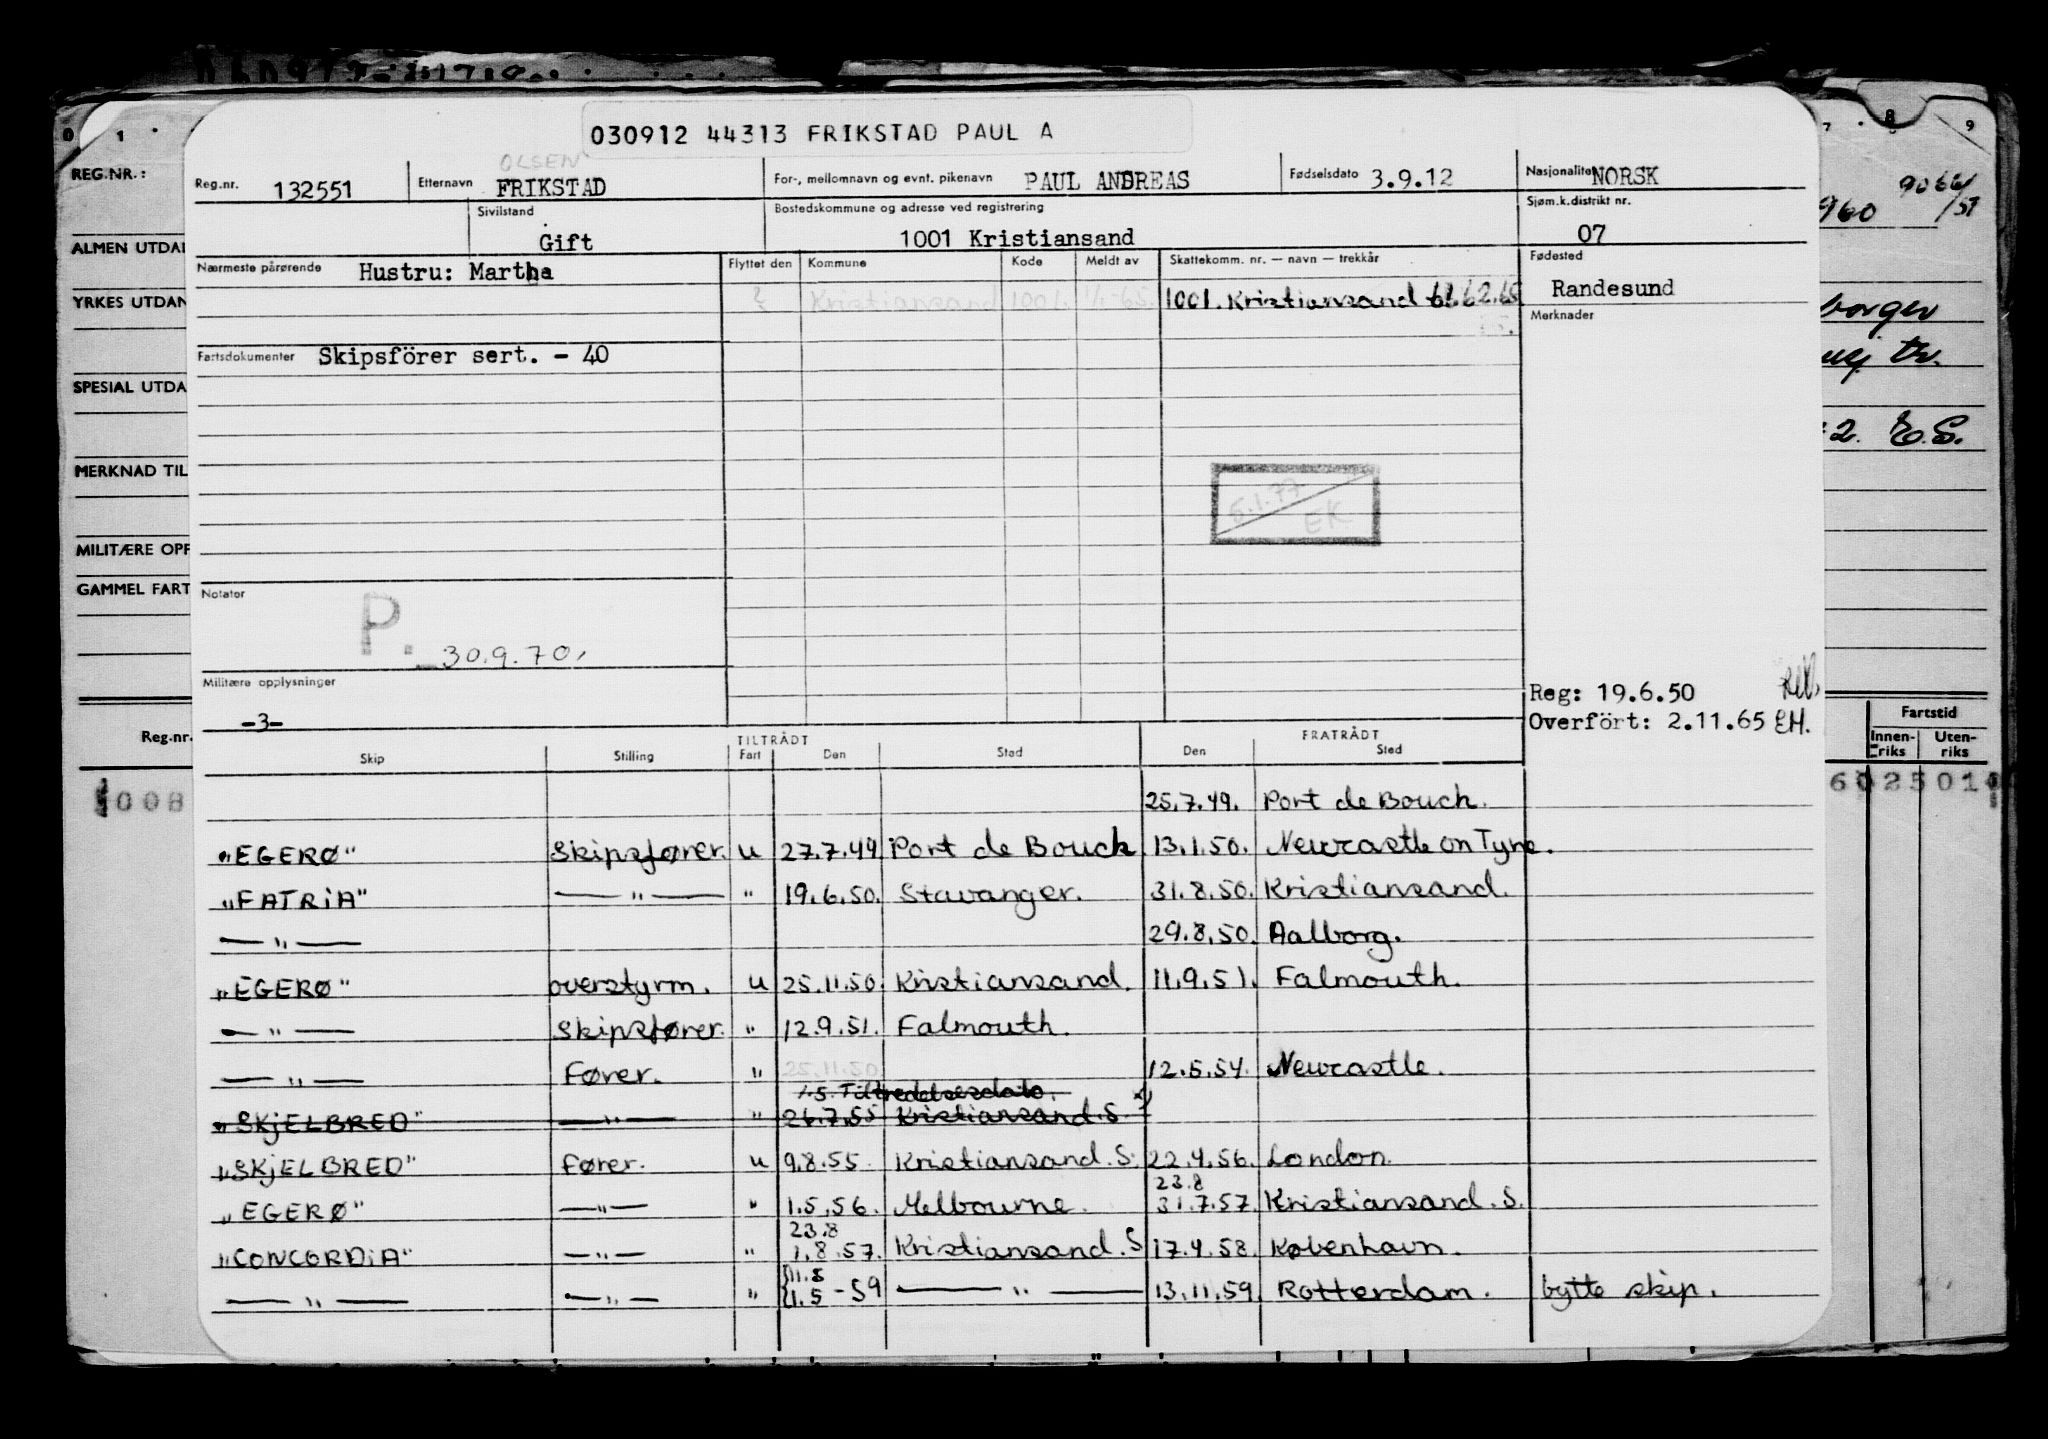 030912 44313 FRIKSTAD PAUL A
0 1 7 8 9
REG.NR.:
OLSEN
Reg.nr. 132551 Etternavn FRIKSTAD For-, mellomnavn og evnt. pikenavn PAUL ANDREAS Fødselsdato 3.9.12 Nasjonalitet NORSK
960
Sivilstand Gift Bostedskommune og adresse ved registrering 1001 Kristiansand Sjøm.k.distrikt nr. 07
ALMEN UTDA
Nærmeste pårørende Hustru: Martha Flyttet den Kommune Kode Meldt av Skattekomm. nr. — navn — trekkår Fødested Randesund
YRKES UTDAN
Kristiansand 1001. 1/1-65. 1001. Kristiansand 61.62.65
Merknader
Fartsdokumenter Skipsförer sert. - 40
SPESIAL UTDA
2. E.S.
MERKNAD TIL
5.1.77
EK
MILITÆRE OPP
GAMMEL FART
Notater P. 30.9.70.
Militære opplysninger -3-
Reg: 19.6.50
Overfört: 2.11.65 EH.
Reg.nr.
Fartstid
Innen-riks Uten-riks
TILTRÅDT FRATRÅDT
Skip Stilling Fart Den Sted Den Sted
1008 602501
25.7.49. Port de Bouch.
"EGERØ" Skipsfører. u 27.7.49. Port de Bouck 13.1.50. Newcastle on Tyne.
"FATRIA" — " — " 19.6.50. Stavanger. 31.8.50. Kristiansand.
— " — 29.8.50. Aalborg.
"EGERØ" overstyrm. u 25.11.50. Kristiansand. 11.9.51. Falmouth.
— " — Skipsfører. " 12.9.51. Falmouth.
— " — Fører. " 25.11.50 12.5.54. Newcastle.
1.5. Tiltredelsesdato.
"SKJELBRED" — " — " 26.7.55 Kristiansand.S x)
"SKJELBRED" fører. u 9.8.55. Kristiansand.S. 22.4.56. London.
23.8
"EGERØ" — " — " 1.5.56. Melbourne. 31.7.57. Kristiansand.S.
23.8
"CONCORDIA" — " — " 1.8.57. Kristiansand.S 17.4.58. København.
11.5
— " — — " — " 1.5 -59 — " — 13.11.59. Rotterdam. bytte skip.